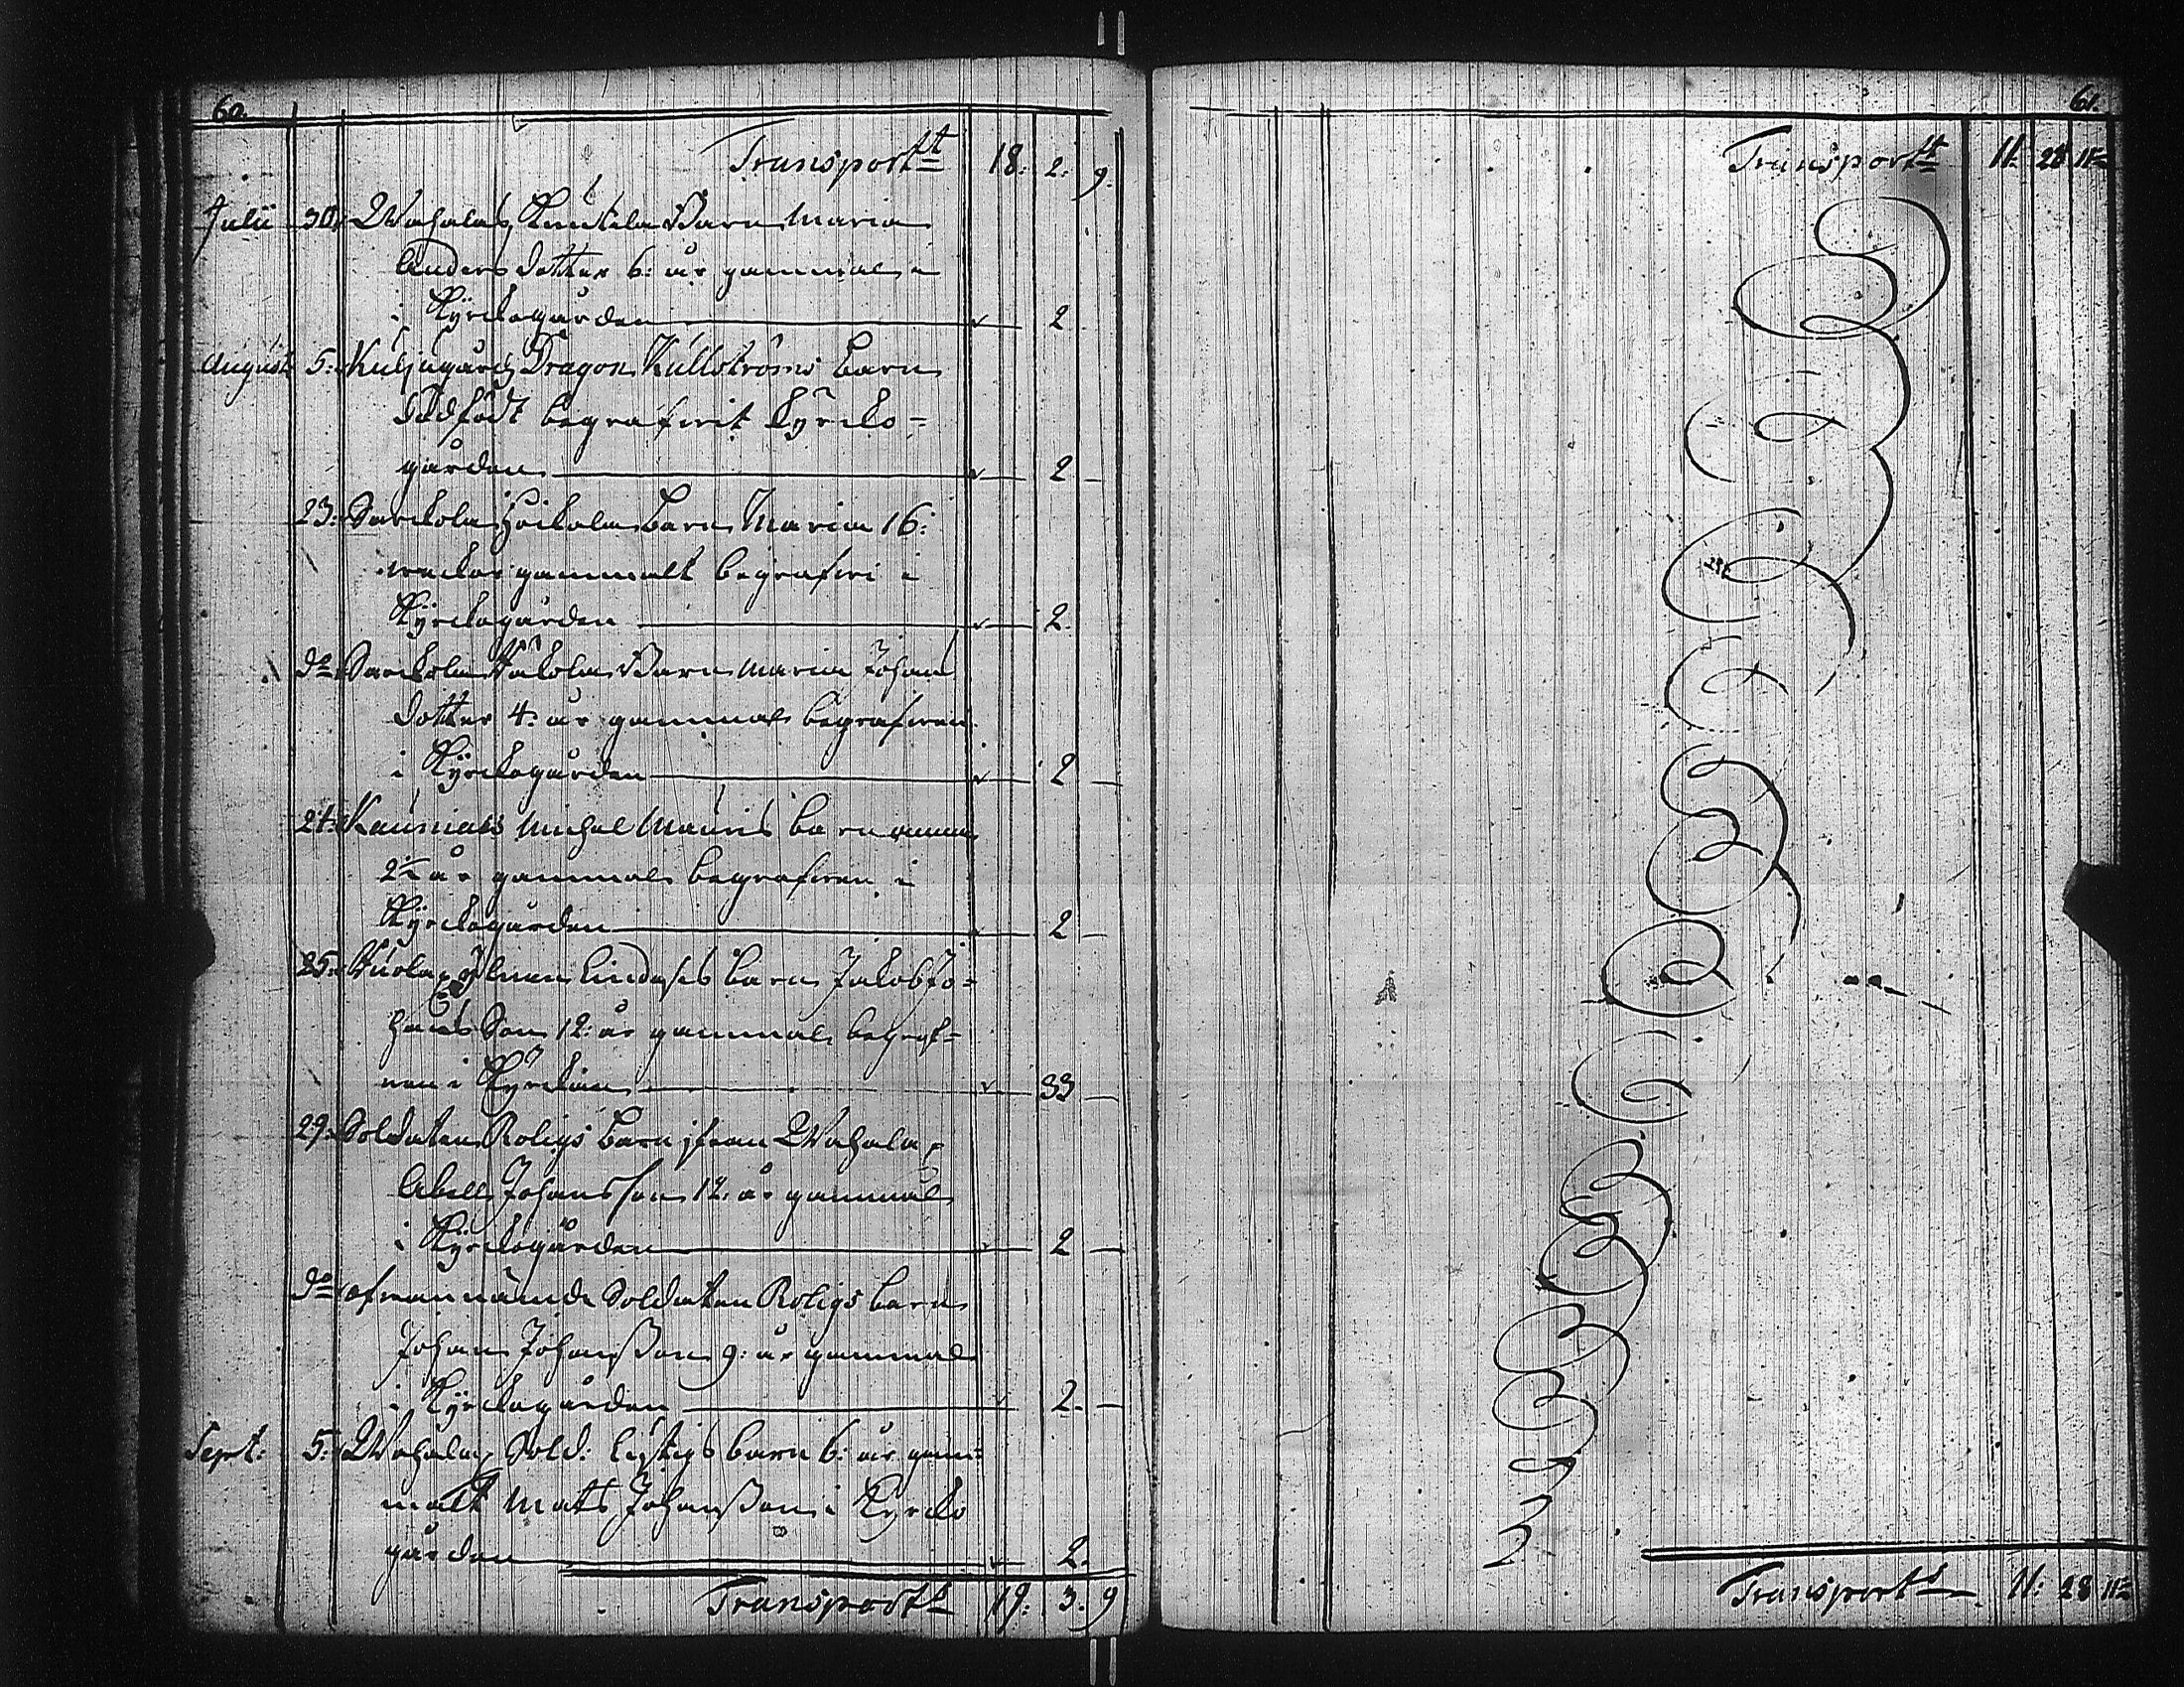 60.
Transportt 18: 2. 9.
Julii 30. Wahalax, Knutila Barn Maria
Anders dotter 6: år gammal,
i Kyrckogården 2
August 5. Dragon Kullströms barn
dödfödt begrafwit Kyrcko-
gården 2
23. Sarckola Heikola barn Maria 16:
weckor gammalt begrafwi i
Kyrckogården 2.
do Sarckola barn Maria Johans
dotter 4: år gammal begrafwen
i Kyrckogården 2
24: Michel barn
2½ år gammal begrafwen i
Kyrckogården 2
25. barn Jakob Jo-
hans Son 12: år gammal begraf-
ven i Kyrckan 33
29. Soldaten Roligs barn ifrån Wahalax
Abell Johansson 12. år gammal
i Kyrckogården 2
do ofwannämde Soldaten Roligs barn
Johan Johansson 9: år gammal
i Kyrckogården 2.
Sept: 5: Wahalax Sold: Lustigs barn 6: år gam-
malt Mats Johansson i Kyrcko
gården 2.
Transportt 19: 3. 9
61.
Transportt 11. 28 11
Transportt 11: 28 11